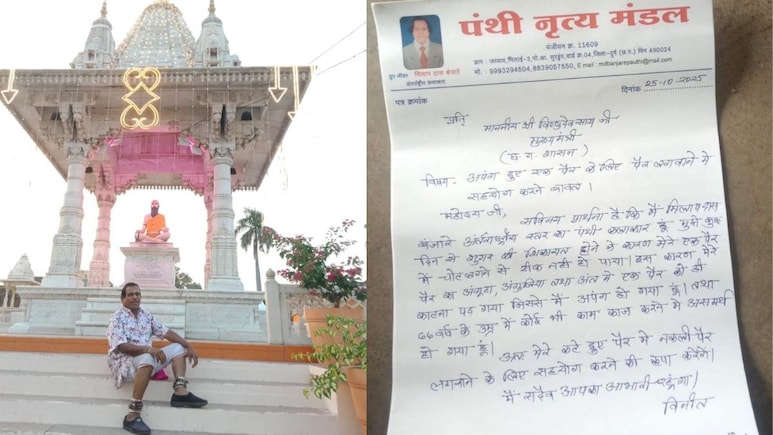 पंथी नृत्य मंडल
पंजीयन क्र. 11609
ग्राम : जरवाय, भिलाई-3, पो.आ. सुरडुंग, वार्ड क्र.04, जिला-दुर्ग (छ.ग.) पिन 490024
मो. : 9993294504,8839057550, E mail : milbanjarepauthi@mail.com
गुरु जीवन
मिलाप दास बंजारे
अंतर्राष्ट्रीय कलाकार
पत्र क्रमांक
दिनांक 25-10-2025
प्रति
माननीय श्री विष्णुदेव साय जी
मुख्यमंत्री
(छ.ग. शासन)
विषय- अपंग हुए एक पैर के लिए पैर लगवाने में
सहयोग करने बाबत।
महोदय जी,
सविनय प्रार्थना है कि मैं मिलाप दास
बंजारे अंतर्राष्ट्रीय स्तर का पंथी कलाकार हूं मुझे कुछ
दिन से शुगर की शिकायत होने के कारण मेरे एक पैर
में चोट लगने से ठीक नहीं हो पाया। इस कारण मेरे
पैर का अंगूठा, अंगुलिया तथा अंत में एक पैर को ही
काटना पड़ गया जिससे मैं अपंग हो गया हूं। तथा
66 वर्ष के उम्र में कोई भी काम काज करने में असमर्थ
हो गया हूं।
अतः मेरे कटे हुए पैर में नकली पैर
लगवाने के लिए सहयोग करने की कृपा करेंगे।
मैं सदैव आपका आभारी रहूंगा।
विनीत